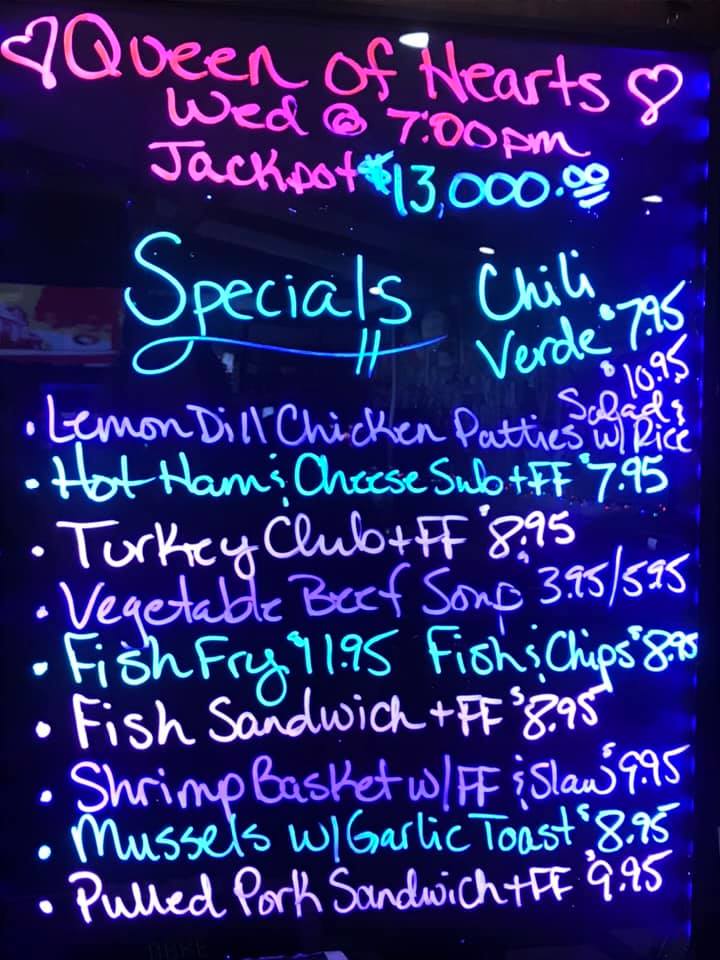 Queen of Hearts
Wed @ 7:00pm
Jackpot $13,000.00
Specials
Chili
Verde $7.95
$10.95
• Lemon Dill Chicken Patties Salad & w/ Rice
• Hot Ham & Cheese Sub + FF $7.95
• Turkey Club + FF $8.95
• Vegetable Beef Soup $3.95/5.95
• Fish Fry $11.95 Fish & Chips $8.95
• Fish Sandwich + FF $8.95
• Shrimp Basket w/ FF & Slaw $9.95
• Mussels w/ Garlic Toast $8.95
• Pulled Pork Sandwich + FF $9.95